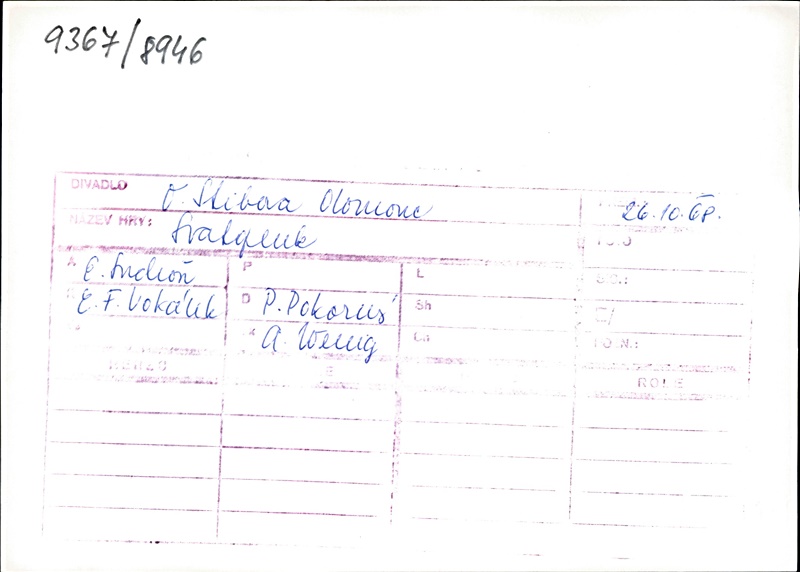 9367/8946
DIVADLO O. Stibora Olomouc 26.10.68.
NÁZEV HRY: Svatopluk
A E. Suchoň P L
E. F. Vokálek D P. Pokorný Sh
A. Wenig
ROLE